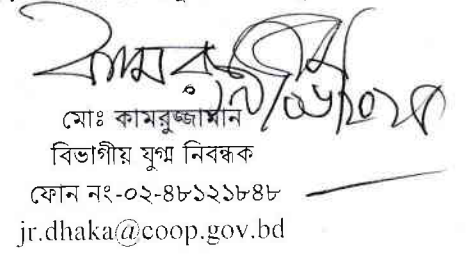 মোঃ কামরুজ্জামান
বিভাগীয় যুগ্ম নিবন্ধক
ফোন নং-০২-৪৮১২১৮৪৮
jr.dhaka@coop.gov.bd